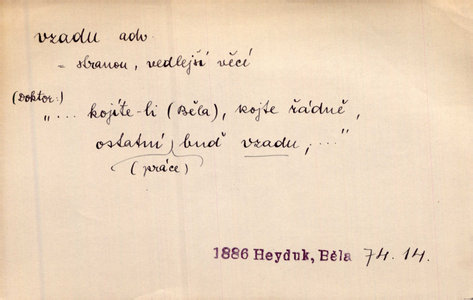 vzadu adv.
= stranou, vedlejší věcí
(Doktor:)
"... kojíte-li (Běla), kojte řádně,
ostatní buď vzadu, ..."
(práce)
1886 Heyduk, Běla 74. 14.